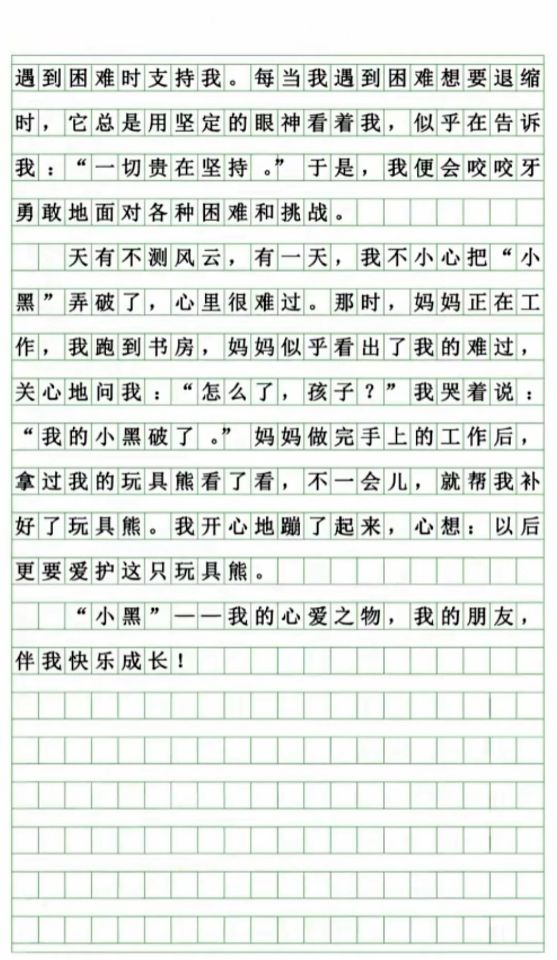 遇到困难时支持我。每当我遇到困难想要退缩
时，它总是用坚定的眼神看着我，似乎在告诉
我：“一切贵在坚持。”于是，我便会咬咬牙
勇敢地面对各种困难和挑战。
天有不测风云，有一天，我不小心把“小
黑”弄破了，心里很难过。那时，妈妈正在工
作，我跑到书房，妈妈似乎看出了我的难过，
关心地问我：“怎么了，孩子？”我哭着说：
“我的小黑破了。”妈妈做完手上的工作后，
拿过我的玩具熊看了看，不一会儿，就帮我补
好了玩具熊。我开心地蹦了起来，心想：以后
更要爱护这只玩具熊。
“小黑”——我的心爱之物，我的朋友，
伴我快乐成长！